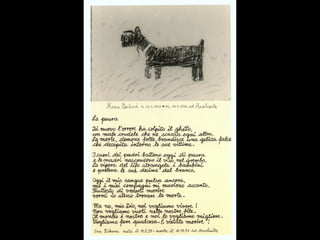 ad Auschwitz
La paura
Di nuovo l'orrore ha colpito il ghetto,
un male crudele che ne scaccia ogni altro.
La morte, demone folle, brandisce una gelida falce
che decapita intorno le sue vittime.
I cuori dei padri battono oggi di paura
e le madri nascondono il viso nel grembo.
La vipera del tifo strangola i bambini
e preleva le sue decime dal branco.
Oggi il mio sangue pulsa ancora,
ma i miei compagni mi muoiono accanto.
Piuttosto di vederli morire
vorrei io stesso trovare la morte.
Ma no, mio Dio, noi vogliamo vivere!
Non vogliamo vuoti nelle nostre file.
Il mondo è nostro e noi lo vogliamo migliore.
Vogliamo fare qualcosa. È vietato morire!
Eva nata il 15.5.29 morta il ad Auschwitz